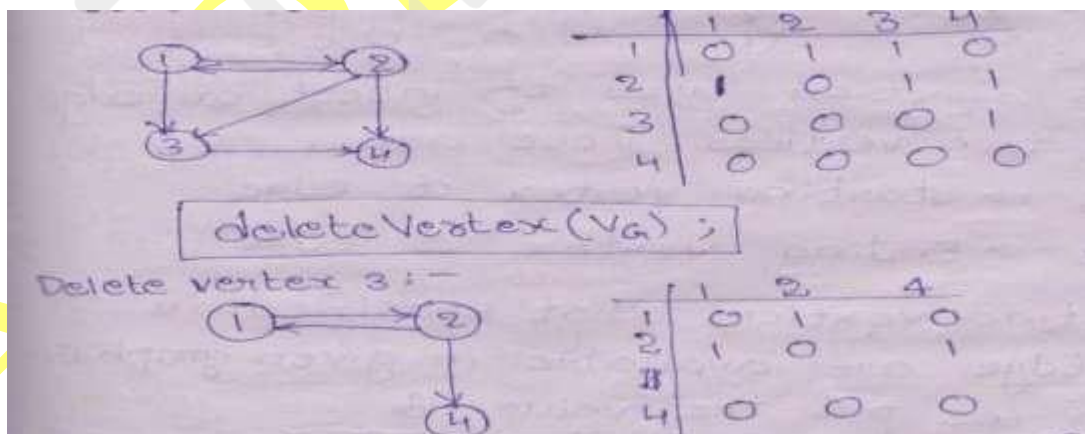 1 2 3 4
1 0 1 1 0
2 1 0 1 1
3 0 0 0 1
4 0 0 0 0
1 2
3 4
deleteVertex(VG) ;
Delete vertex 3 :-
1 2
4
1 2 4
1 0 1 0
2 1 0 1
4 0 0 0